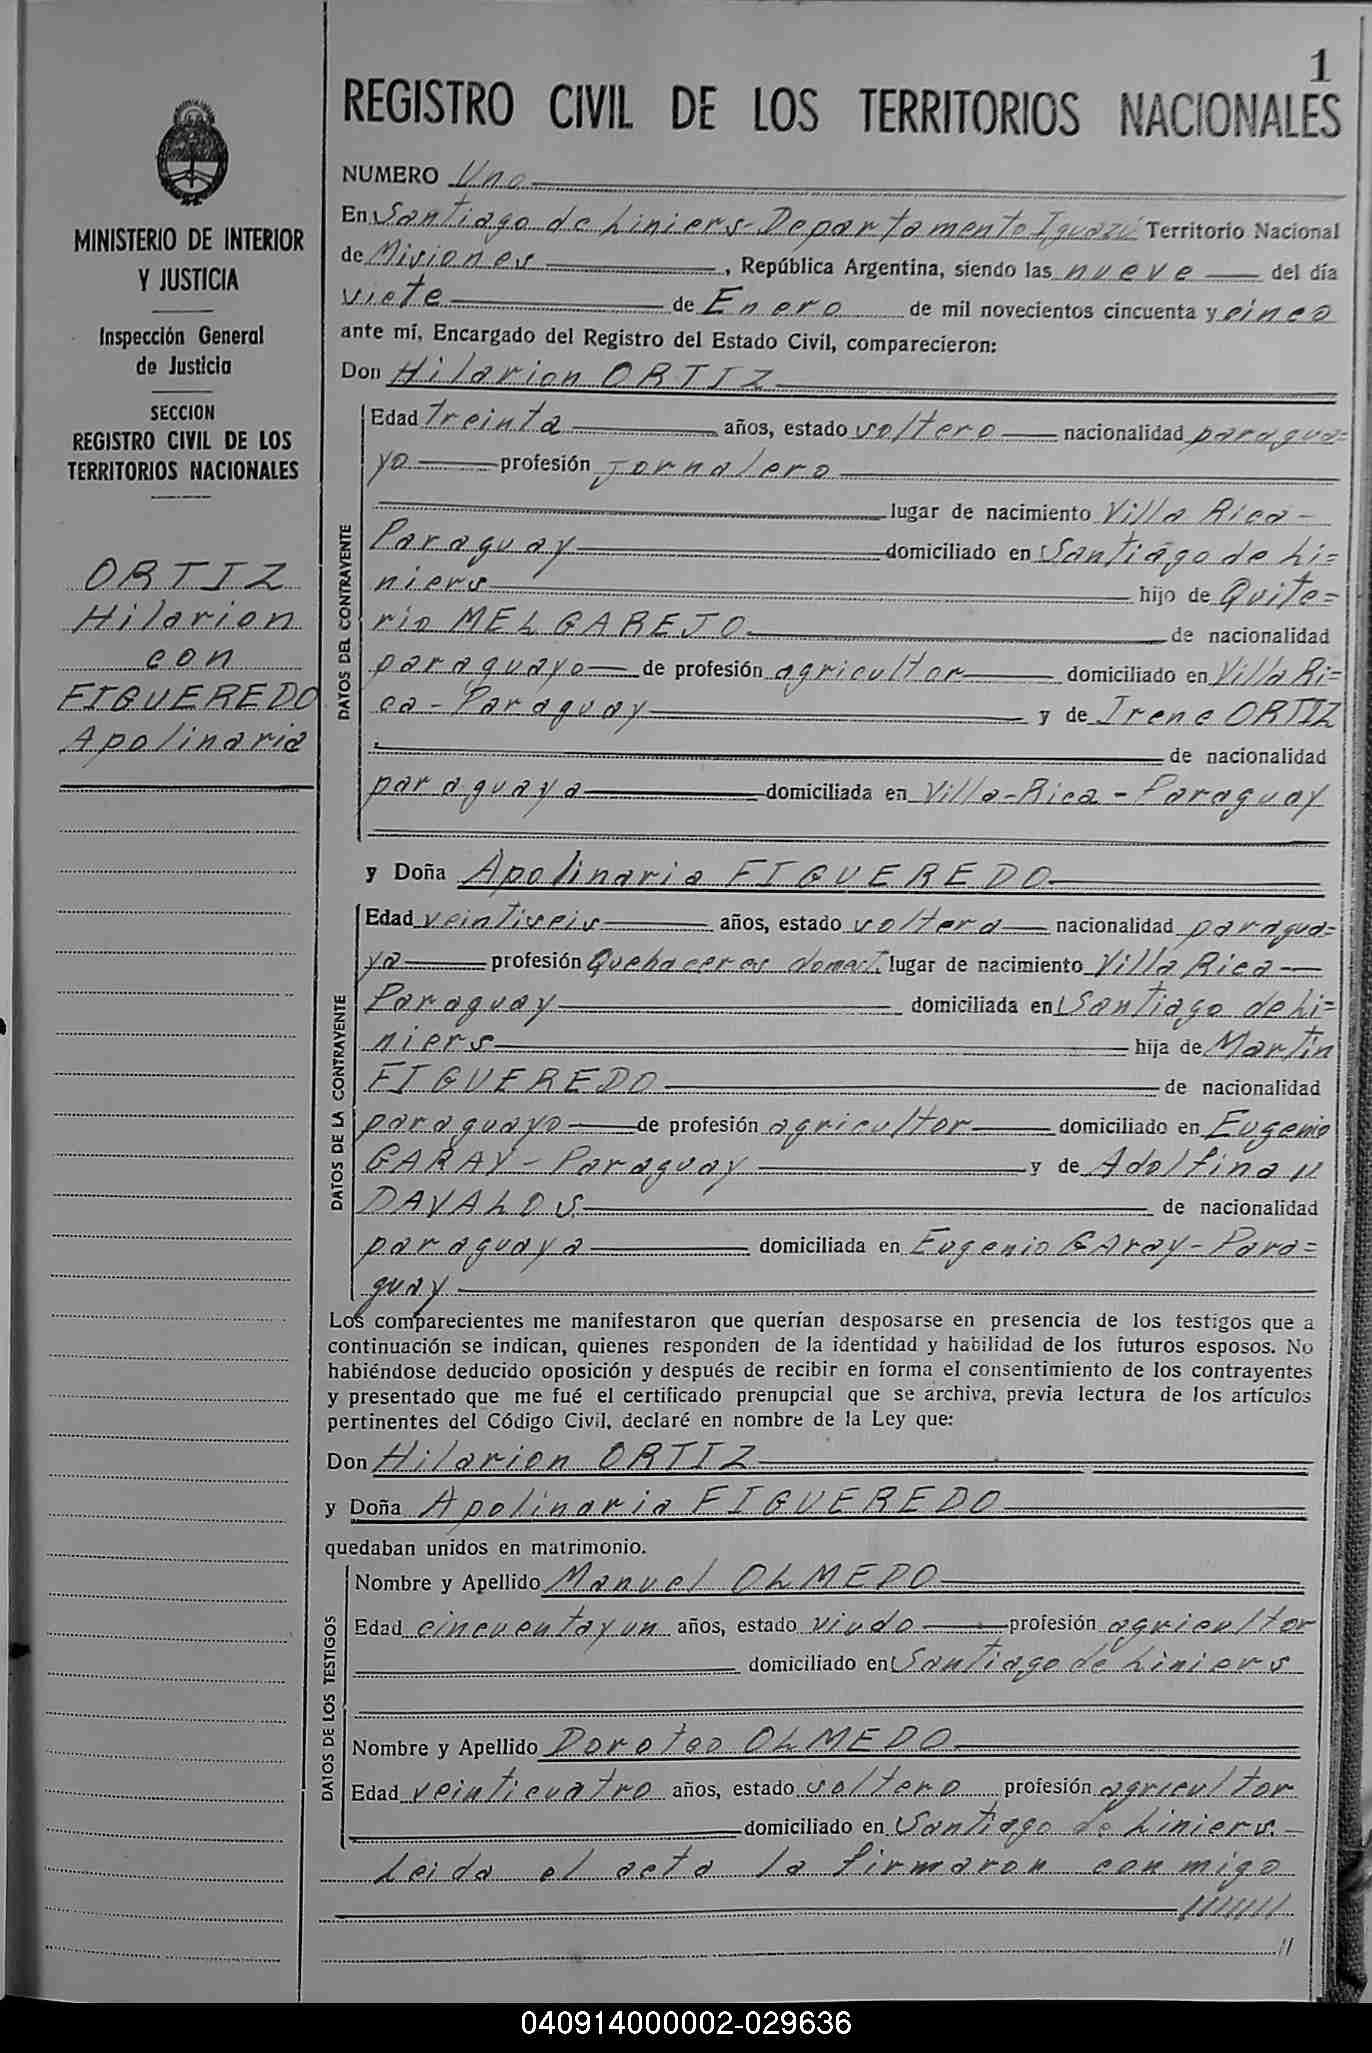 1
REGISTRO CIVIL DE LOS TERRITORIOS NACIONALES
MINISTERIO DE INTERIOR
Y JUSTICIA
Inspección General
de Justicia
SECCION
REGISTRO CIVIL DE LOS
TERRITORIOS NACIONALES
ORTIZ
Hilarion
con
FIGUEREDO
Apolinaria
NUMERO Uno
En Santiago de Liniers-Departamento Iguazú Territorio Nacional
de Misiones, República Argentina, siendo las nueve del día
siete de Enero de mil novecientos cincuenta y cinco
ante mí, Encargado del Registro del Estado Civil, comparecieron:
Don Hilarion ORTIZ
DATOS DEL CONTRAYENTE
Edad treinta años, estado soltero nacionalidad paragua=
yo profesión jornalero
lugar de nacimiento Villa Rica-
Paraguay domiciliado en Santiago de Li=
niers hijo de Quite=
rio MELGAREJO de nacionalidad
paraguayo de profesión agricultor domiciliado en Villa Ri=
ca-Paraguay y de Irene ORTIZ
de nacionalidad
paraguaya domiciliada en Villa-Rica-Paraguay
y Doña Apolinaria FIGUEREDO
DATOS DE LA CONTRAYENTE
Edad veintiseis años, estado soltera nacionalidad paragua=
ya profesión Quehaceres domest. lugar de nacimiento Villa Rica
Paraguay domiciliada en Santiago de Li=
niers hija de Martín
FIGUEREDO de nacionalidad
paraguayo de profesión agricultor domiciliado en Eugenio
GARAY-Paraguay y de Adolfina
DAVALOS de nacionalidad
paraguaya domiciliada en Eugenio GAray-Para=
guay
Los comparecientes me manifestaron que querían desposarse en presencia de los testigos que a
continuación se indican, quienes responden de la identidad y habilidad de los futuros esposos. No
habiéndose deducido oposición y después de recibir en forma el consentimiento de los contrayentes
y presentado que me fué el certificado prenupcial que se archiva, previa lectura de los artículos
pertinentes del Código Civil, declaré en nombre de la Ley que:
Don Hilarion ORTIZ
y Doña Apolinaria FIGUEREDO
quedaban unidos en matrimonio.
DATOS DE LOS TESTIGOS
Nombre y Apellido Manuel OLMEDO
Edad cincuenta y un años, estado viudo profesión agricultor
domiciliado en Santiago de Liniers
Nombre y Apellido Doroteo OLMEDO
Edad veinticuatro años, estado soltero profesión agricultor
domiciliado en Santiago de Liniers.-
Leida el acta la firmaron conmigo
040914000002-029636